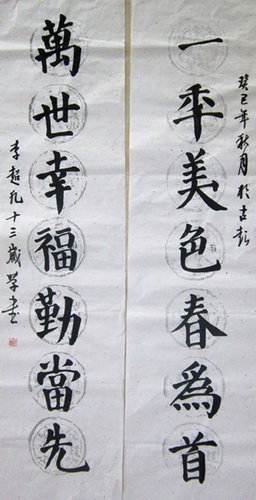 癸巳年秋月於吉彭
一年美色春為首
萬世幸福勤當先
李超凡十三歲學書